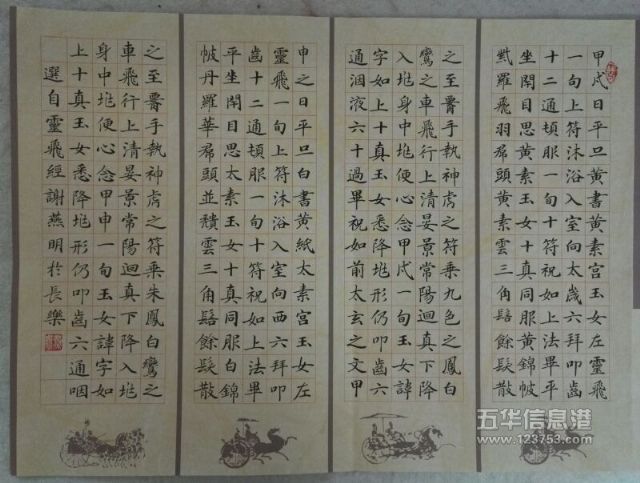 甲戌日平旦黄書黄素宫玉女左靈飛
一旬上符沐浴入室向太歲六拜叩齒
十二通頓服一旬十符祝如上法畢平
坐閉目思黄素玉女十真同服黄錦帔
紫羅飛羽帬頭黄素雲三角髻餘髮散
之至腰手執神虎之符乘九色之鳳白
鸞之車飛行上清晏景常陽迴真下降
入兆身中兆便心念甲戌一旬玉女諱
字如上十真玉女悉降兆形仍叩齒六
通咽液六十過畢祝如前太玄之文甲
申之日平旦白書黄紙太素宫玉女左
靈飛一旬上符沐浴入室向西六拜叩
齒十二通頓服一旬十符祝如上法畢
平坐閉目思太素玉女十真同服白錦
帔丹羅華帬頭並頽雲三角髻餘髮散
之至腰手執神虎之符乘朱鳳白鸞之
車飛行上清晏景常陽迴真下降入兆
身中兆便心念甲申一旬玉女諱字如
上十真玉女悉降兆形仍叩齒六通咽
選自靈飛經謝燕明於長樂
五华信息港
www.123753.com